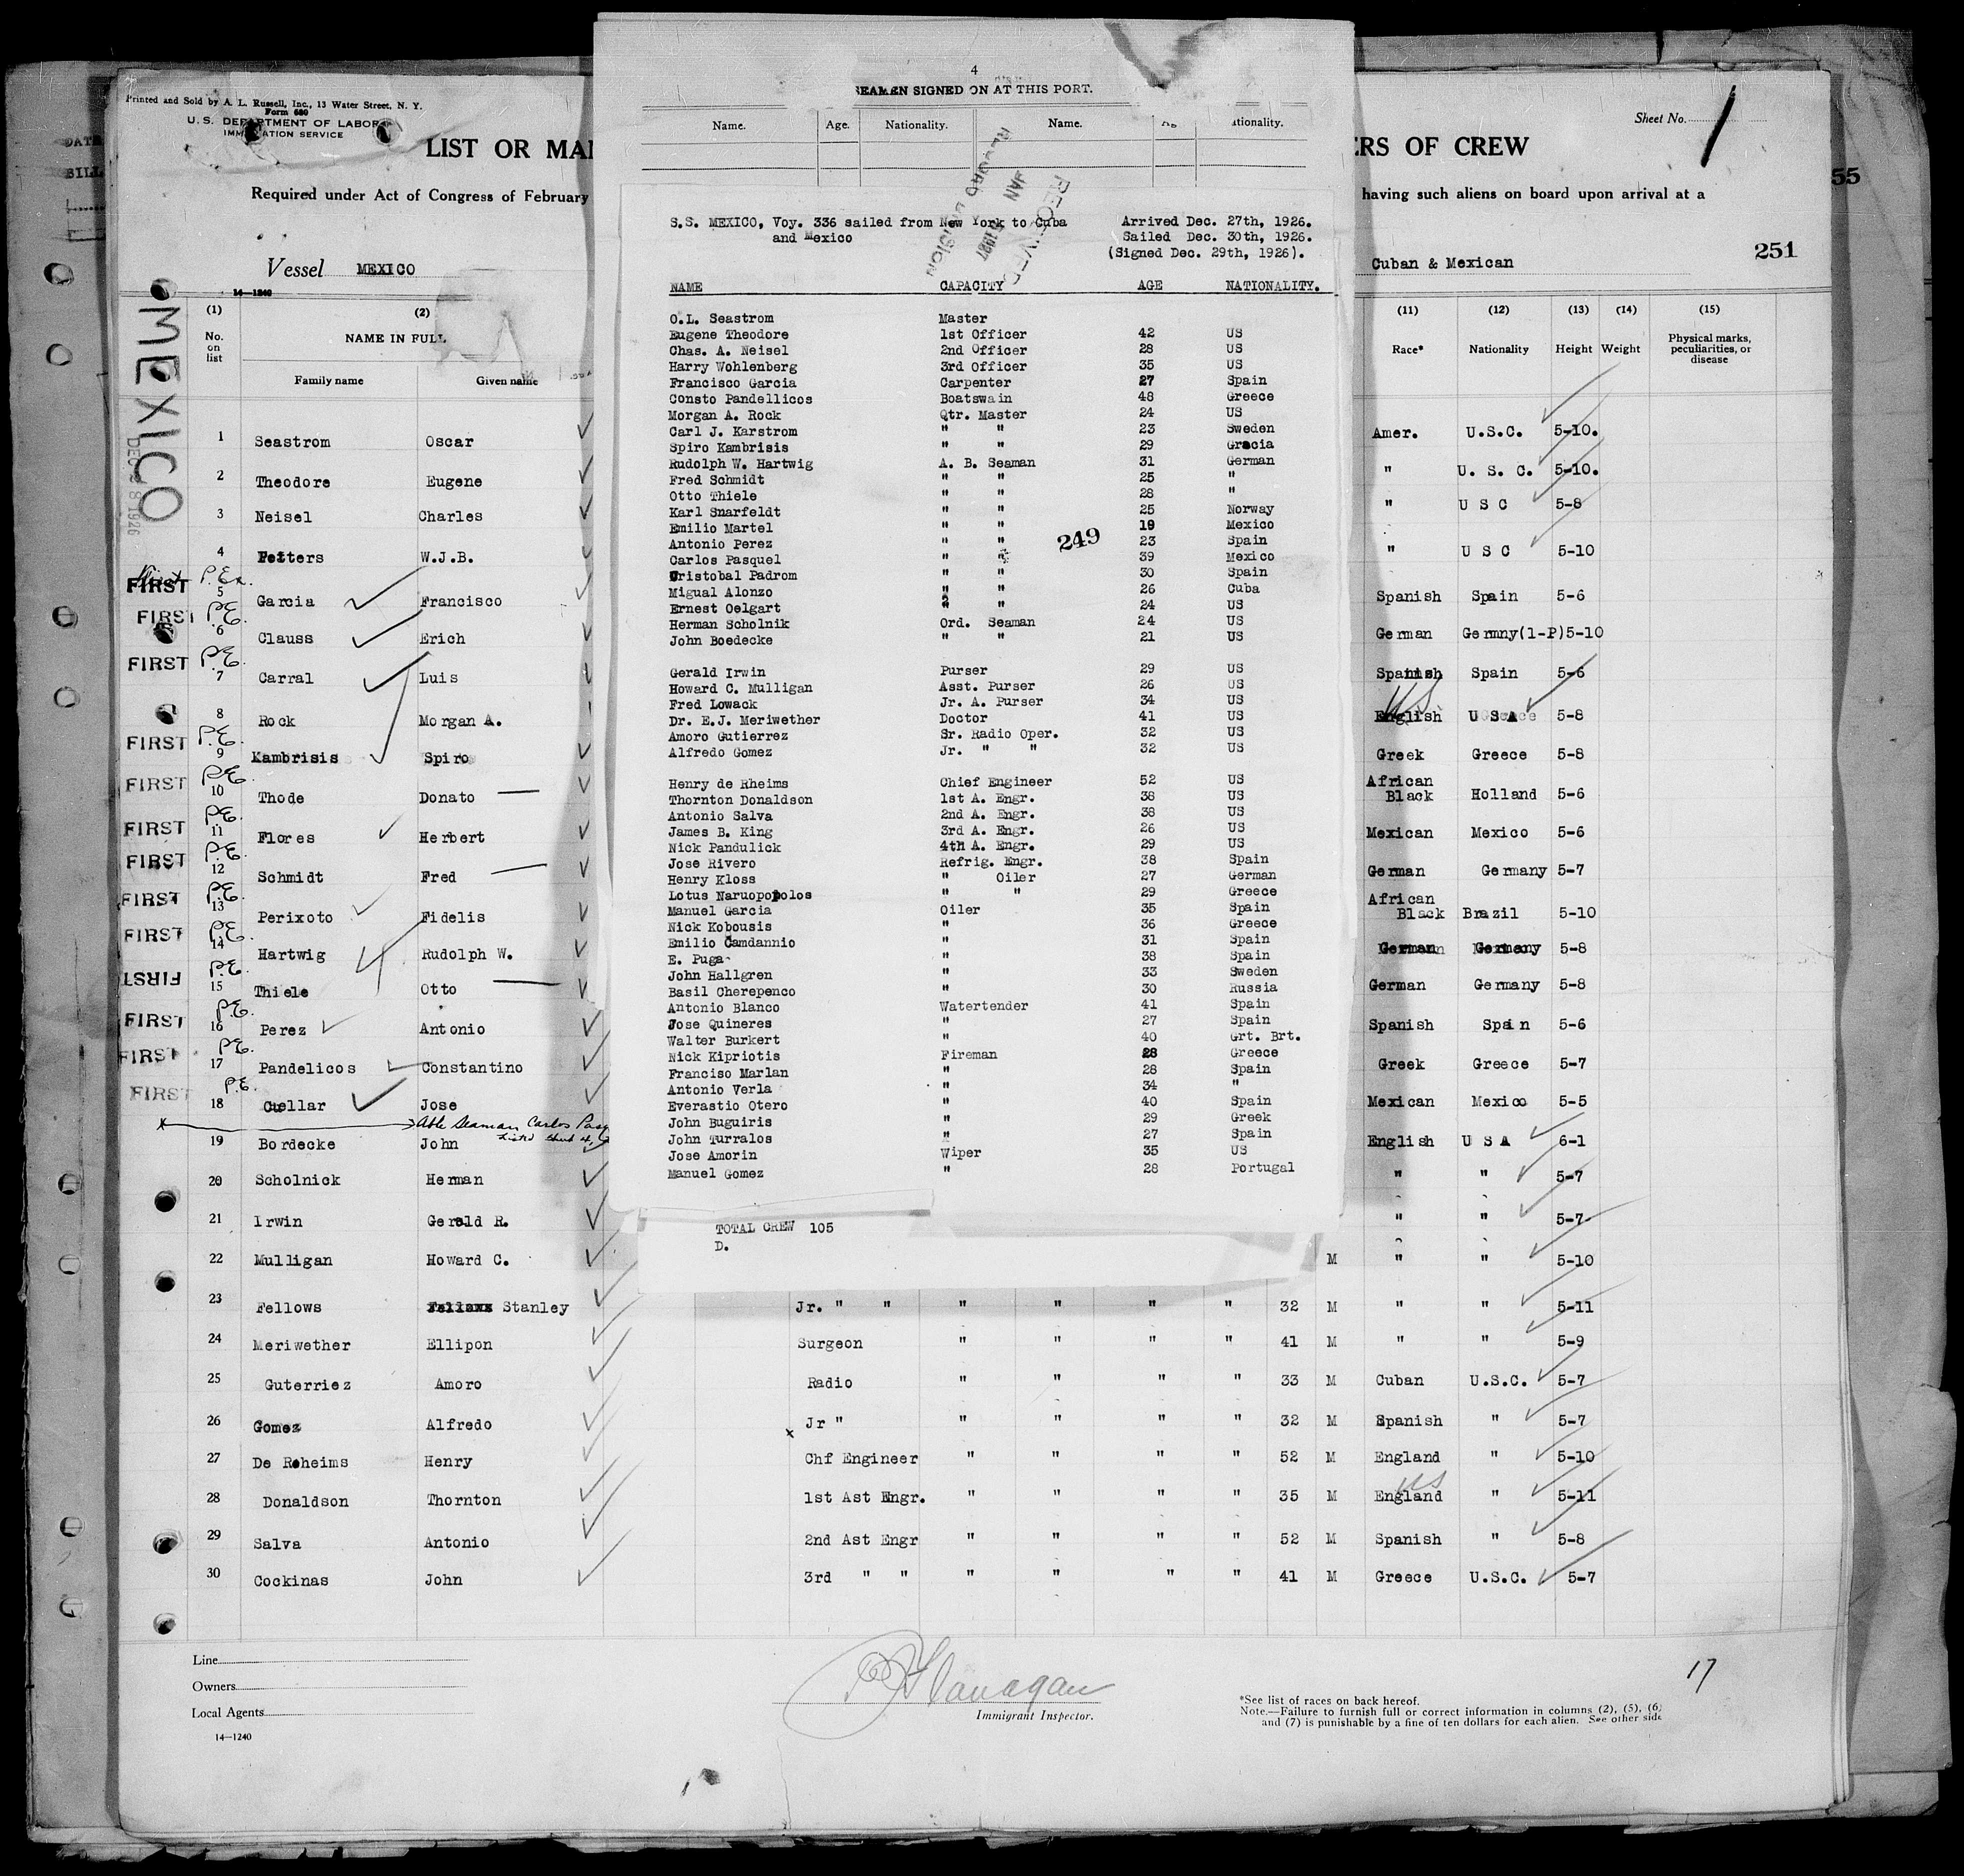 4
SEAMEN SIGNED ON AT THIS PORT.
Name. Age. Nationality. Name. Nationality.
S.S. MEXICO, Voy. 336 sailed from New York to Cuba and Mexico
Arrived Dec. 27th, 1926.
Sailed Dec. 30th, 1926.
(Signed Dec. 29th, 1926).
RECEIVED
JAN
1927
NAME CAPACITY AGE NATIONALITY.
O.L. Seastrom Master
Eugene Theodore 1st Officer 42 US
Chas. A. Neisel 2nd Officer 28 US
Harry Wohlenberg 3rd Officer 35 US
Francisco Garcia Carpenter 27 Spain
Consto Pandellicos Boatswain 48 Greece
Morgan A. Rock Qtr. Master 24 US
Carl J. Karstrom " " 23 Sweden
Spiro Kambrisis " " 29 Gracia
Rudolph W. Hartwig A. B. Seaman 31 German
Fred Schmidt " " 25 "
Otto Thiele " " 28 "
Karl Snarfeldt " " 25 Norway
Emilio Martel " " 19 Mexico
Antonio Perez " " 23 Spain
249
Carlos Pasquel " " 39 Mexico
Cristobal Padrom " " 30 Spain
Migual Alonzo " " 26 Cuba
Ernest Oelgart " " 24 US
Herman Scholnik Ord. Seaman 24 US
John Boedecke " " 21 US
Gerald Irwin Purser 29 US
Howard C. Mulligan Asst. Purser 26 US
Fred Lowack Jr. A. Purser 34 US
Dr. E.J. Meriwether Doctor 41 US
Amoro Gutierrez Sr. Radio Oper. 32 US
Alfredo Gomez Jr. " " 32 US
Henry de Rheims Chief Engineer 52 US
Thornton Donaldson 1st A. Engr. 38 US
Antonio Salva 2nd A. Engr. 38 US
James B. King 3rd A. Engr. 26 US
Nick Pandulick 4th A. Engr. 29 US
Jose Rivero Refrig. Engr. 38 Spain
Henry Kloss " Oiler 27 German
Lotus Naruopopolos " " 29 Greece
Manuel Garcia Oiler 35 Spain
Nick Kobousis " 36 Greece
Emilio Camdannio " 31 Spain
E. Puga " 38 Spain
John Hallgren " 33 Sweden
Basil Cherepenco " 30 Russia
Antonio Blanco Watertender 41 Spain
Jose Quineres " 27 Spain
Walter Burkert " 40 Grt. Brt.
Nick Kipriotis Fireman 28 Greece
Franciso Marlan " 28 Spain
Antonio Verla " 34 "
Everastio Otero " 40 Spain
John Buguiris " 29 Greek
John Turralos " 27 Spain
Jose Amorin Wiper 35 US
Manuel Gomez " 28 Portugal
TOTAL CREW 105
D.
Printed and Sold by A. L. Russell, Inc., 13 Water Street, N. Y.
Form 680
U.S. DEPARTMENT OF LABOR
IMMIGRATION SERVICE
Sheet No. 1
LIST OR MAN ERS OF CREW
Required under Act of Congress of February having such aliens on board upon arrival at a
55
251
Vessel MEXICO Cuban & Mexican
14—1240
MEXICO
1926
(1) (2) (11) (12) (13) (14) (15)
No. on list NAME IN FULL Race* Nationality Height Weight Physical marks, peculiarities, or disease
Family name Given name
1 Seastrom Oscar Amer. U.S.C. 5-10.
2 Theodore Eugene " U. S. C. 5-10.
3 Neisel Charles " U S C 5-8
4 Fetters W.J.B. " U S C 5-10
FIRST P.E. 5 Garcia Francisco Spanish Spain 5-6
FIRST P.E. 6 Clauss Erich German Germny(1-P) 5-10
FIRST P.E. 7 Carral Luis Spanish Spain 5-6
8 Rock Morgan A. English US U S A 5-8
FIRST P.E. 9 Kambrisis Spiro Greek Greece 5-8
FIRST P.E. 10 Thode Donato African Black Holland 5-6
FIRST P.E. 11 Flores Herbert Mexican Mexico 5-6
FIRST P.E. 12 Schmidt Fred German Germany 5-7
FIRST P.E. 13 Perixoto Fidelis African Black Brazil 5-10
FIRST P.E. 14 Hartwig Rudolph W. German Germany 5-8
FIRST P.E. 15 Thiele Otto German Germany 5-8
FIRST P.E. 16 Perez Antonio Spanish Spain 5-6
FIRST P.E. 17 Pandelicos Constantino Greek Greece 5-7
FIRST P.E. 18 Cuellar Jose Mexican Mexico 5-5
x Able Seaman Carlos Pasq
Listed sheet 4,
19 Bordecke John English U S A 6-1
20 Scholnick Herman " " 5-7
21 Irwin Gerald R. " " 5-7
22 Mulligan Howard C. M " " 5-10
23 Fellows Stanley Jr. " " " " " " 32 M " " 5-11
24 Meriwether Ellipon Surgeon " " " " 41 M " " 5-9
25 Guterriez Amoro Radio " " " " 33 M Cuban U.S.C. 5-7
26 Gomez Alfredo x Jr " " " " " 32 M Spanish " 5-7
27 De Rheims Henry Chf Engineer " " " " 52 M England " 5-10
28 Donaldson Thornton 1st Ast Engr. " " " " 35 M England US " 5-11
29 Salva Antonio 2nd Ast Engr " " " " 52 M Spanish " 5-8
30 Cockinas John 3rd " " " " " " 41 M Greece U.S.C. 5-7
Line
Owners
Local Agents
14—1240
Flanagan
Immigrant Inspector.
17
*See list of races on back hereof.
Note.—Failure to furnish full or correct information in columns (2), (5), (6)
and (7) is punishable by a fine of ten dollars for each alien. See other side